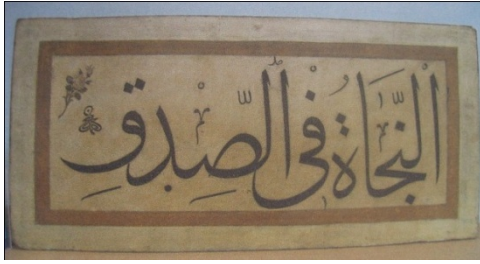 اَلنَّجَاةُ فِى الصِّدْقِ